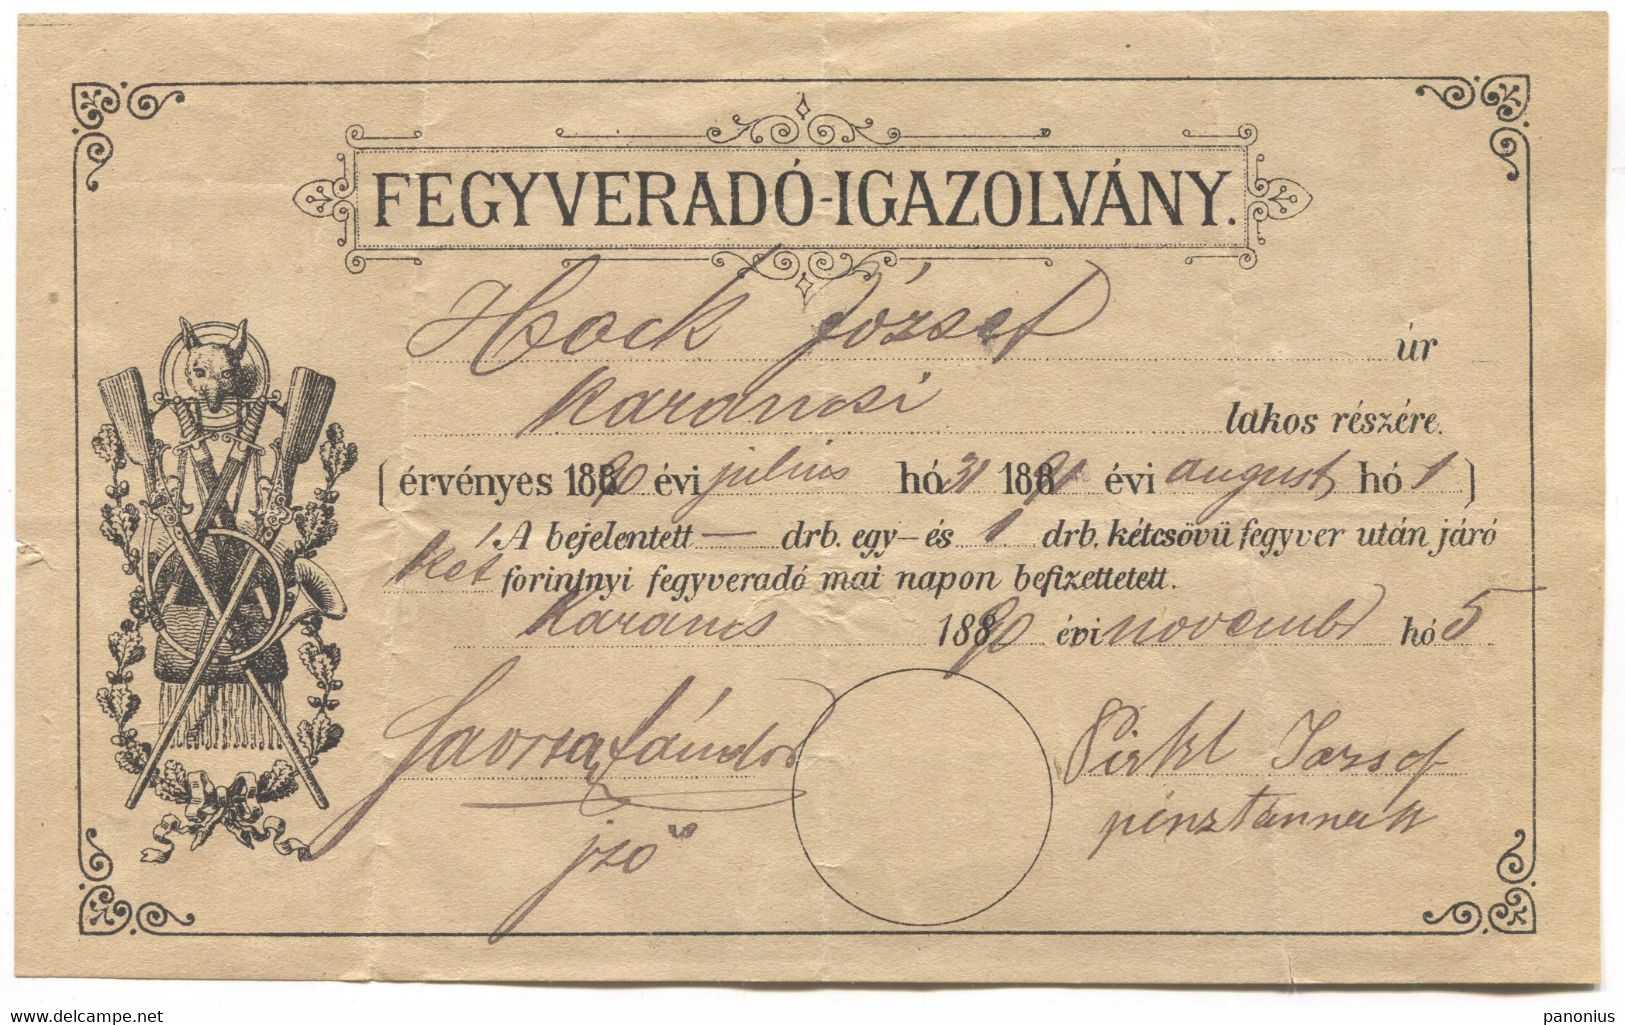 FEGYVERADÓ-IGAZOLVÁNY.
Hock József úr
Karancsi lakos részére.
(érvényes 1890 évi julius hó 31 1891 évi august hó 1)
A bejelentett — drb. egy- és 1 drb. kétcsövü fegyver után járó
két forintnyi fegyveradó mai napon befizettetett.
Karancs 1890 évi novembr hó 5
Sándor Pirkl Jozsef
jző pénztárnok
delcampe.net
panonius